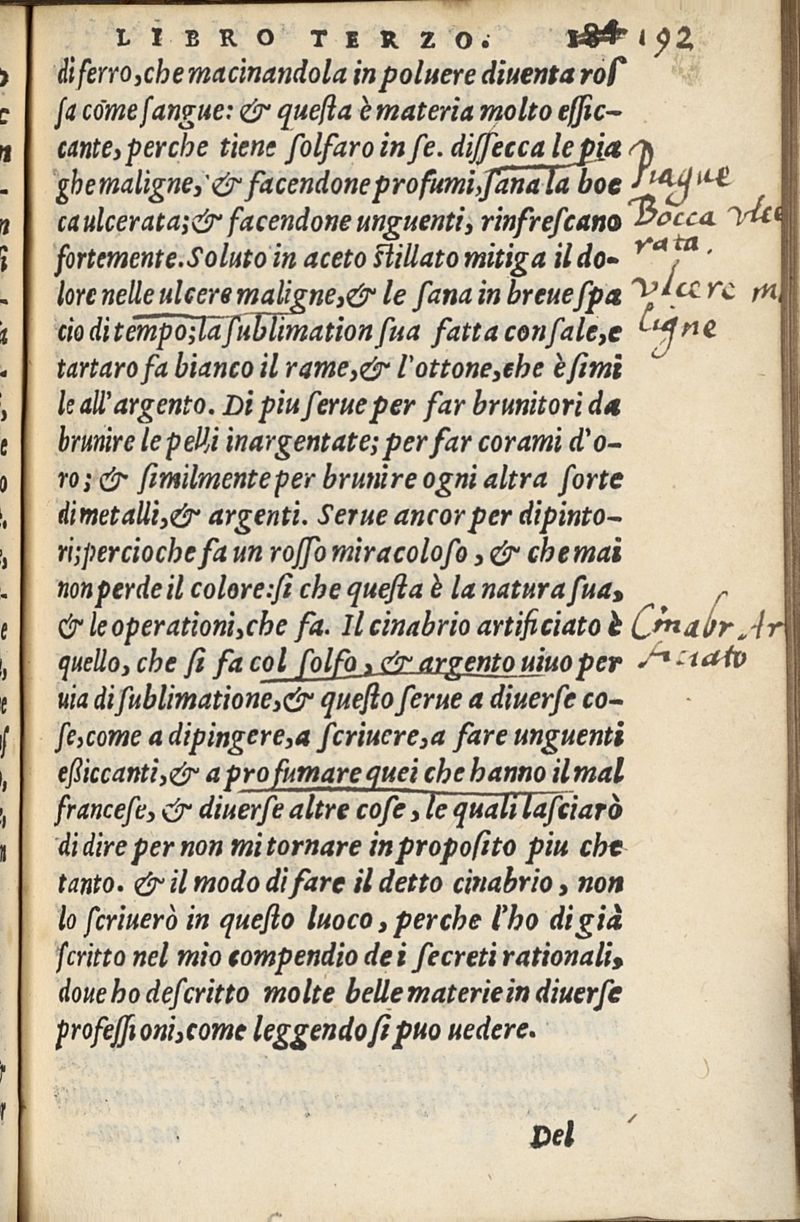 LIBRO TERZO. 184 192
di ferro, che macinandola in poluere diuenta roſ
ſa cōme ſangue: & queſta è materia molto eſſic-
cante, perche tiene ſolfaro in ſe. diſſecca le pia
ghe maligne, & facendone profumi, ſana la boc
ca ulcerata; & facendone unguenti, rinfreſcano
fortemente. Soluto in aceto ſtillato mitiga il do-
lore nelle ulcere maligne, & le ſana in breue ſpa
cio di tempo; la ſublimation ſua fatta con ſale, e
tartaro fa bianco il rame, & l'ottone, che è ſimi
le all'argento. Di piu ſerue per far brunitori da
brunire le pelli inargentate; per far corami d'o-
ro; & ſimilmente per brunire ogni altra ſorte
di metalli, & argenti. Serue ancor per dipinto-
ri; percioche fa un roſſo miracoloſo, & che mai
non perde il colore: ſi che queſta è la natura ſua,
& le operationi, che fa. Il cinabrio artificiato è
quello, che ſi fa col ſolfo, & argento uiuo per
uia di ſublimatione, & queſto ſerue a diuerſe co-
ſe, come a dipingere, a ſcriuere, a fare unguenti
eßiccanti, & a profumare quei che hanno il mal
franceſe, & diuerſe altre coſe, le quali laſciarò
di dire per non mi tornare in propoſito piu che
tanto. & il modo di fare il detto cinabrio, non
lo ſcriuerò in queſto luoco, perche l'ho di già
ſcritto nel mio compendio de i ſecreti rationali,
doue ho deſcritto molte belle materie in diuerſe
profeſſioni, come leggendo ſi puo uedere.
Del
Piague
Bocca vlce
rata.
vlcere ma
ligne
Cinabr Ar
ficiato